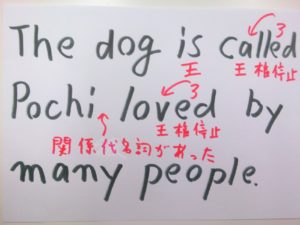 The dog is called
3
王
王 格停止
Pochi loved by
3
王 格停止
関係代名詞があった
many people.